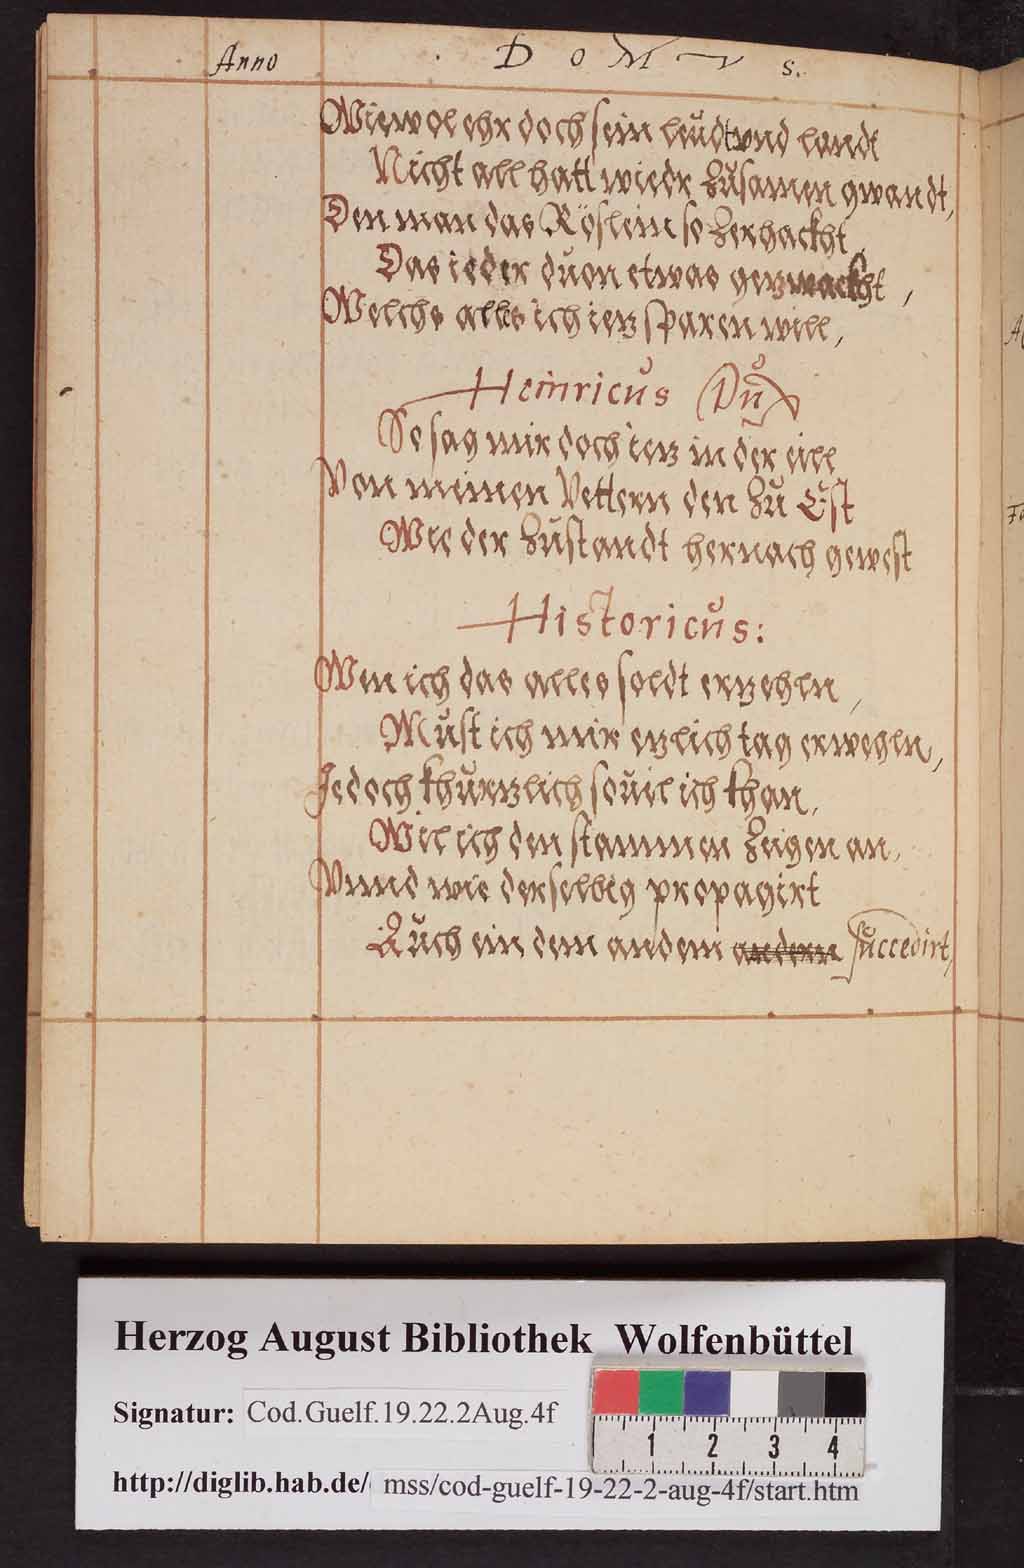 Anno D o M v s.
Wiewol ehr doch sein leüdt vnd landt
Nicht all hatt wiedr zusamen gwandt,
Den man das Röslein so zerhackht,
Das ieder duon etwas gezwackht,
Welchs alles ich ietz sparen will,
Heinricus Dü
So sag mir doch ietz in der eill
Von meinen Vettern den zu Est
Wie der zustandt hernach gewest
Historicus:
Wen ich das alles soldt erzehln,
Must ich mir etzlich tag erwehln,
Jedoch khurtzlich souil ich khan,
Wil ich den stammen zeigen an,
Vnnd wie derselbig propagirt
Auch ein dem andem andern succedirt,
Herzog August Bibliothek Wolfenbüttel
Signatur: Cod.Guelf.19.22.2Aug.4f
1 2 3 4
http://diglib.hab.de/ mss/cod-guelf-19-22-2-aug-4f/start.htm